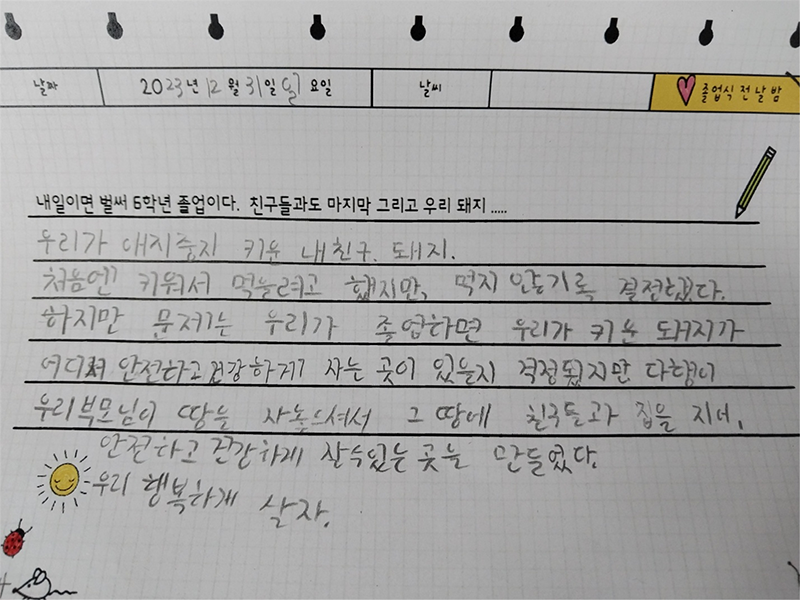 날짜 2023년 12월 31일 일요일 날씨 졸업식 전날 밤
내일이면 벌써 6학년 졸업이다. 친구들과도 마지막 그리고 우리 돼지 .....
우리가 애지중지 키운 내친구. 돼지.
처음엔 키워서 먹을려고 했지만, 먹지 않기록 결정했다.
하지만 문제는 우리가 졸업하면 우리가 키운 돼지가
어디서 안전하고 건강하게 사는 곳이 있을지 걱정됬지만 다행이
우리부모님이 땅을 사놓으셔서 그 땅에 친구들과 집을 지어,
안전하고 건강하게 살수있는 곳을 만들었다.
우리 행복하게 살자.